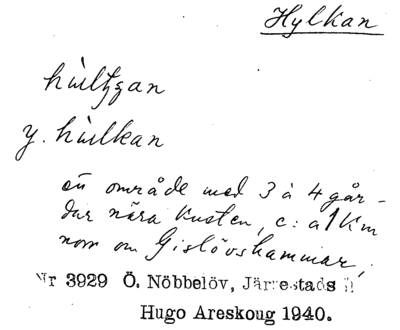 Hylkan
hultjan
y. hulkan
en område med 3 à 4 går-
dar nära kusten, c:a 1 Km
norr om Gislövshammar,
Nr 3929 Ö. Nöbbelöv, Järrestads h
Hugo Areskoug 1940.